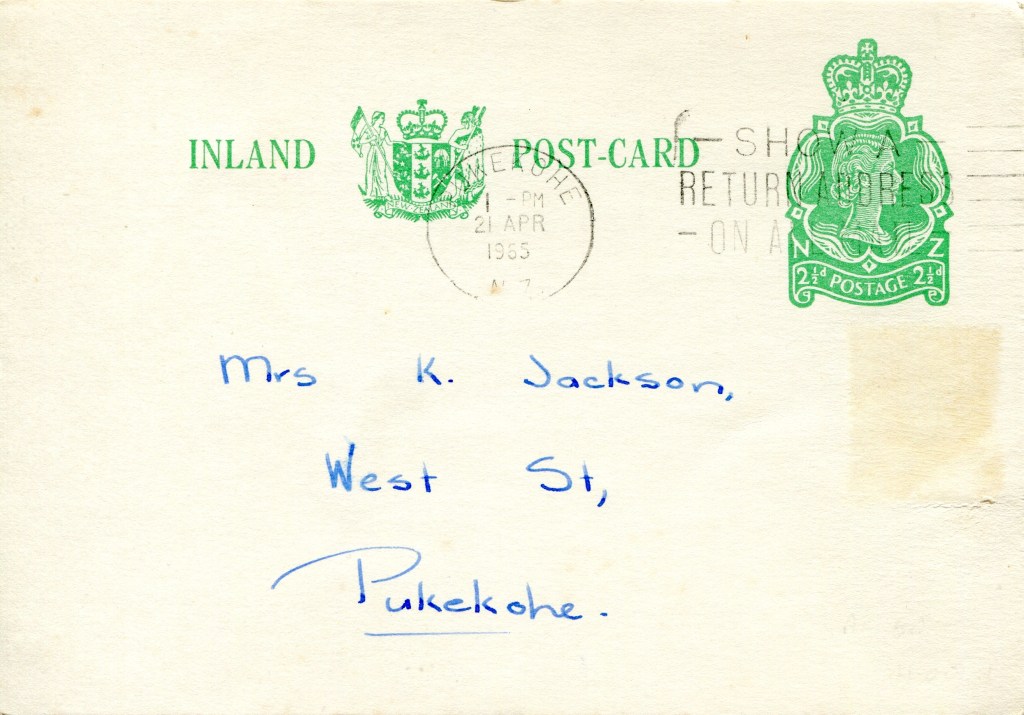 INLAND POST-CARD
NEW ZEALAND
1 -PM
21 APR
1965
N.Z.
SHOW A
RETURN ADDRESS
ON
N Z
2½d POSTAGE 2½d
Mrs K. Jackson,
West St,
Pukekohe.